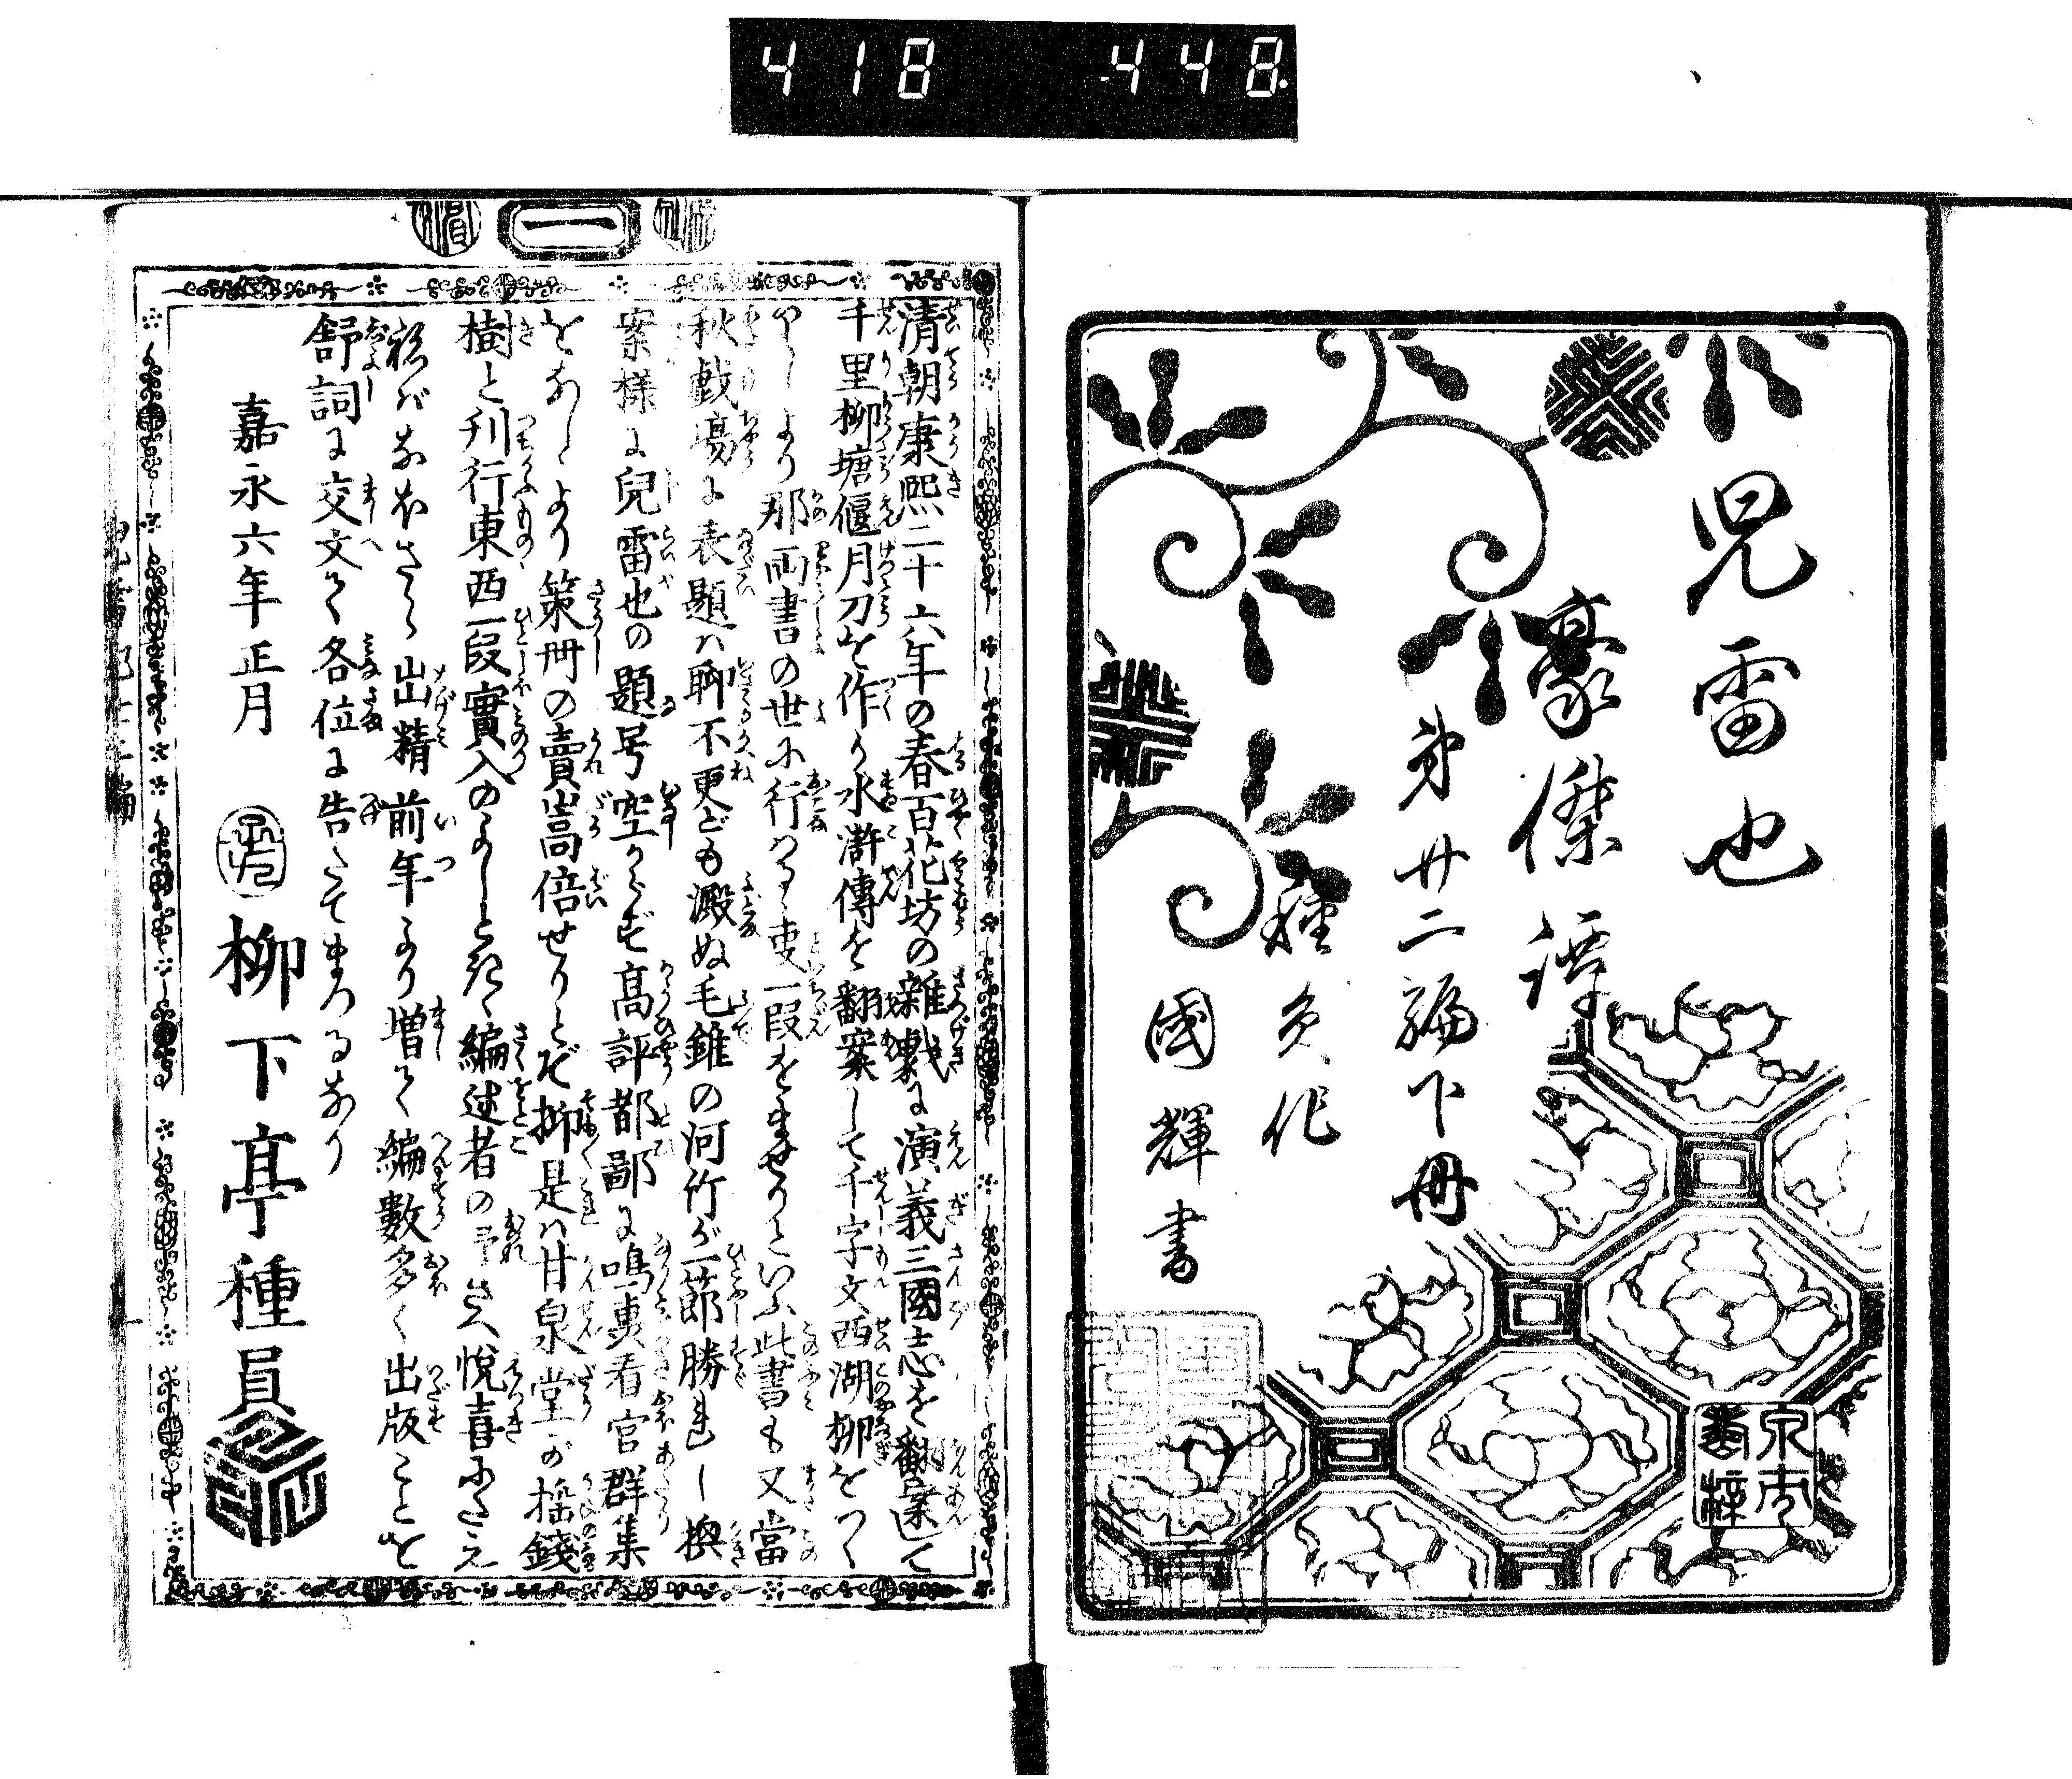 418 448
児雷也
豪傑譚
第廿二編下冊
種員作
國輝書
一
清朝康熙二十六年の春百花坊の雜戯に演義三國志を翻案して
千里柳塘偃月刀を作り水滸傳を翻案して千字文西湖柳をつく
りしより那両書の世に行はるゝ事一段をませりといふ此書も又當
秋戯場に表題は聊不更ども澱ぬ毛錐の河竹が一節勝れし換
案様に兒雷也の題号空からず高評都鄙に鳴轟看官群集
をなしゝより策冊の賣高倍せりとぞ抑是は甘泉堂が揺錢
樹と刋行東西一段實入のよしときく編述者の予さへ悦喜にたえ
ねばなほさら出精前年より増て編數多く出版ことを
舒詞に交文て各位に告たてまつるなり
嘉永六年正月
柳下亭種員